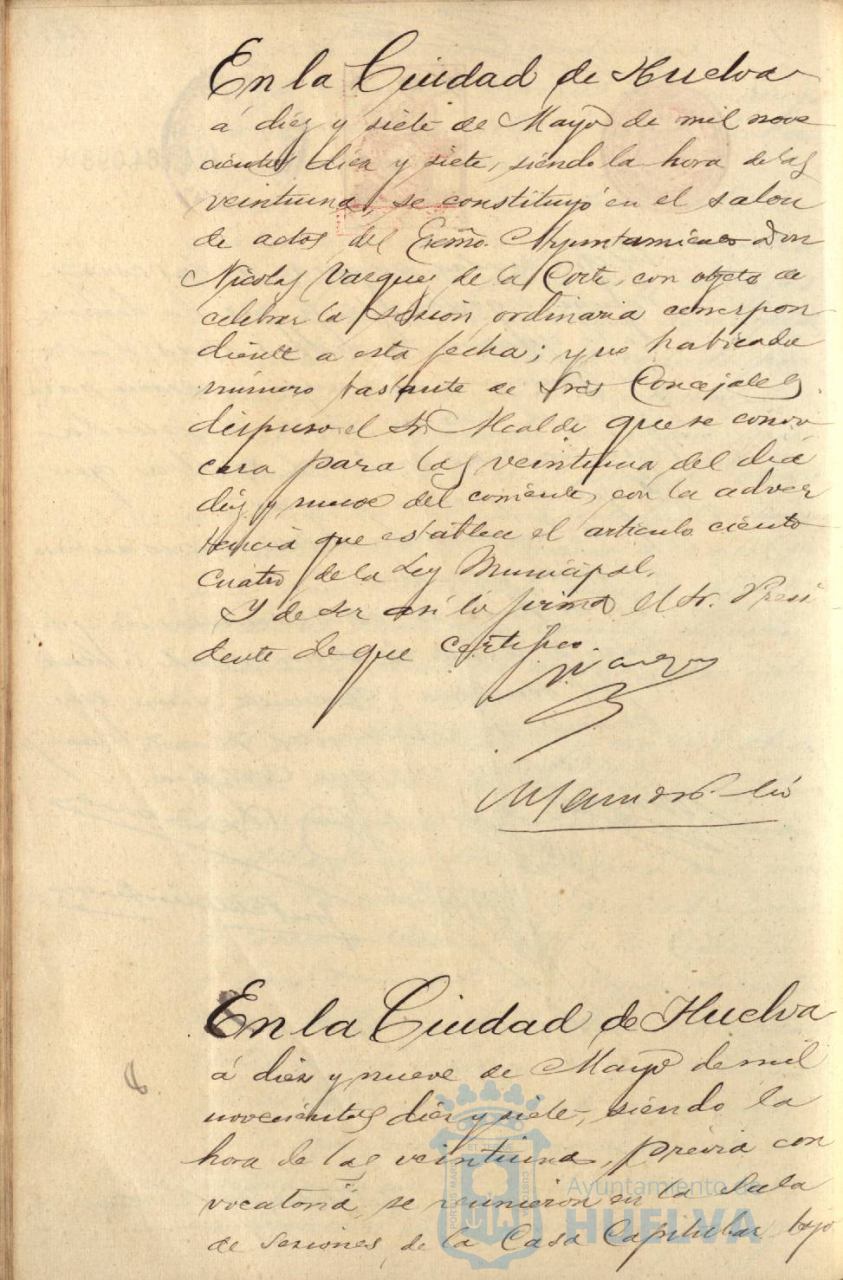 En la Ciudad de Huelva
á diez y siete de Mayo de mil nove
cientos diez y siete, siendo la hora de las
veintiuna, se constituyó en el salon
de actos del Excmo. Ayuntamiento Don
Nicolas Vazquez de la Corte, con objeto de
celebrar la sesión ordinaria correspon
diente a esta fecha; y no habiendo
número bastante de Sres Concejales
dispuso el Sr. Alcalde que se convo
cara para las veintiuna del dia
diez y nueve del corriente, con la adver
tencia que establece el articulo ciento
cuatro de la Ley Municipal.
Y de ser asi lo firma el Sr. Presi
dente de que certifico.
En la Ciudad de Huelva
á diez y nueve de Mayo de mil
novecientos diez y siete, siendo la
hora de las veintiuna, previa con
vocatoria, se reunieron en la Sala
de Sesiones de la Casa Capitular bajo
Ayuntamiento de
HUELVA